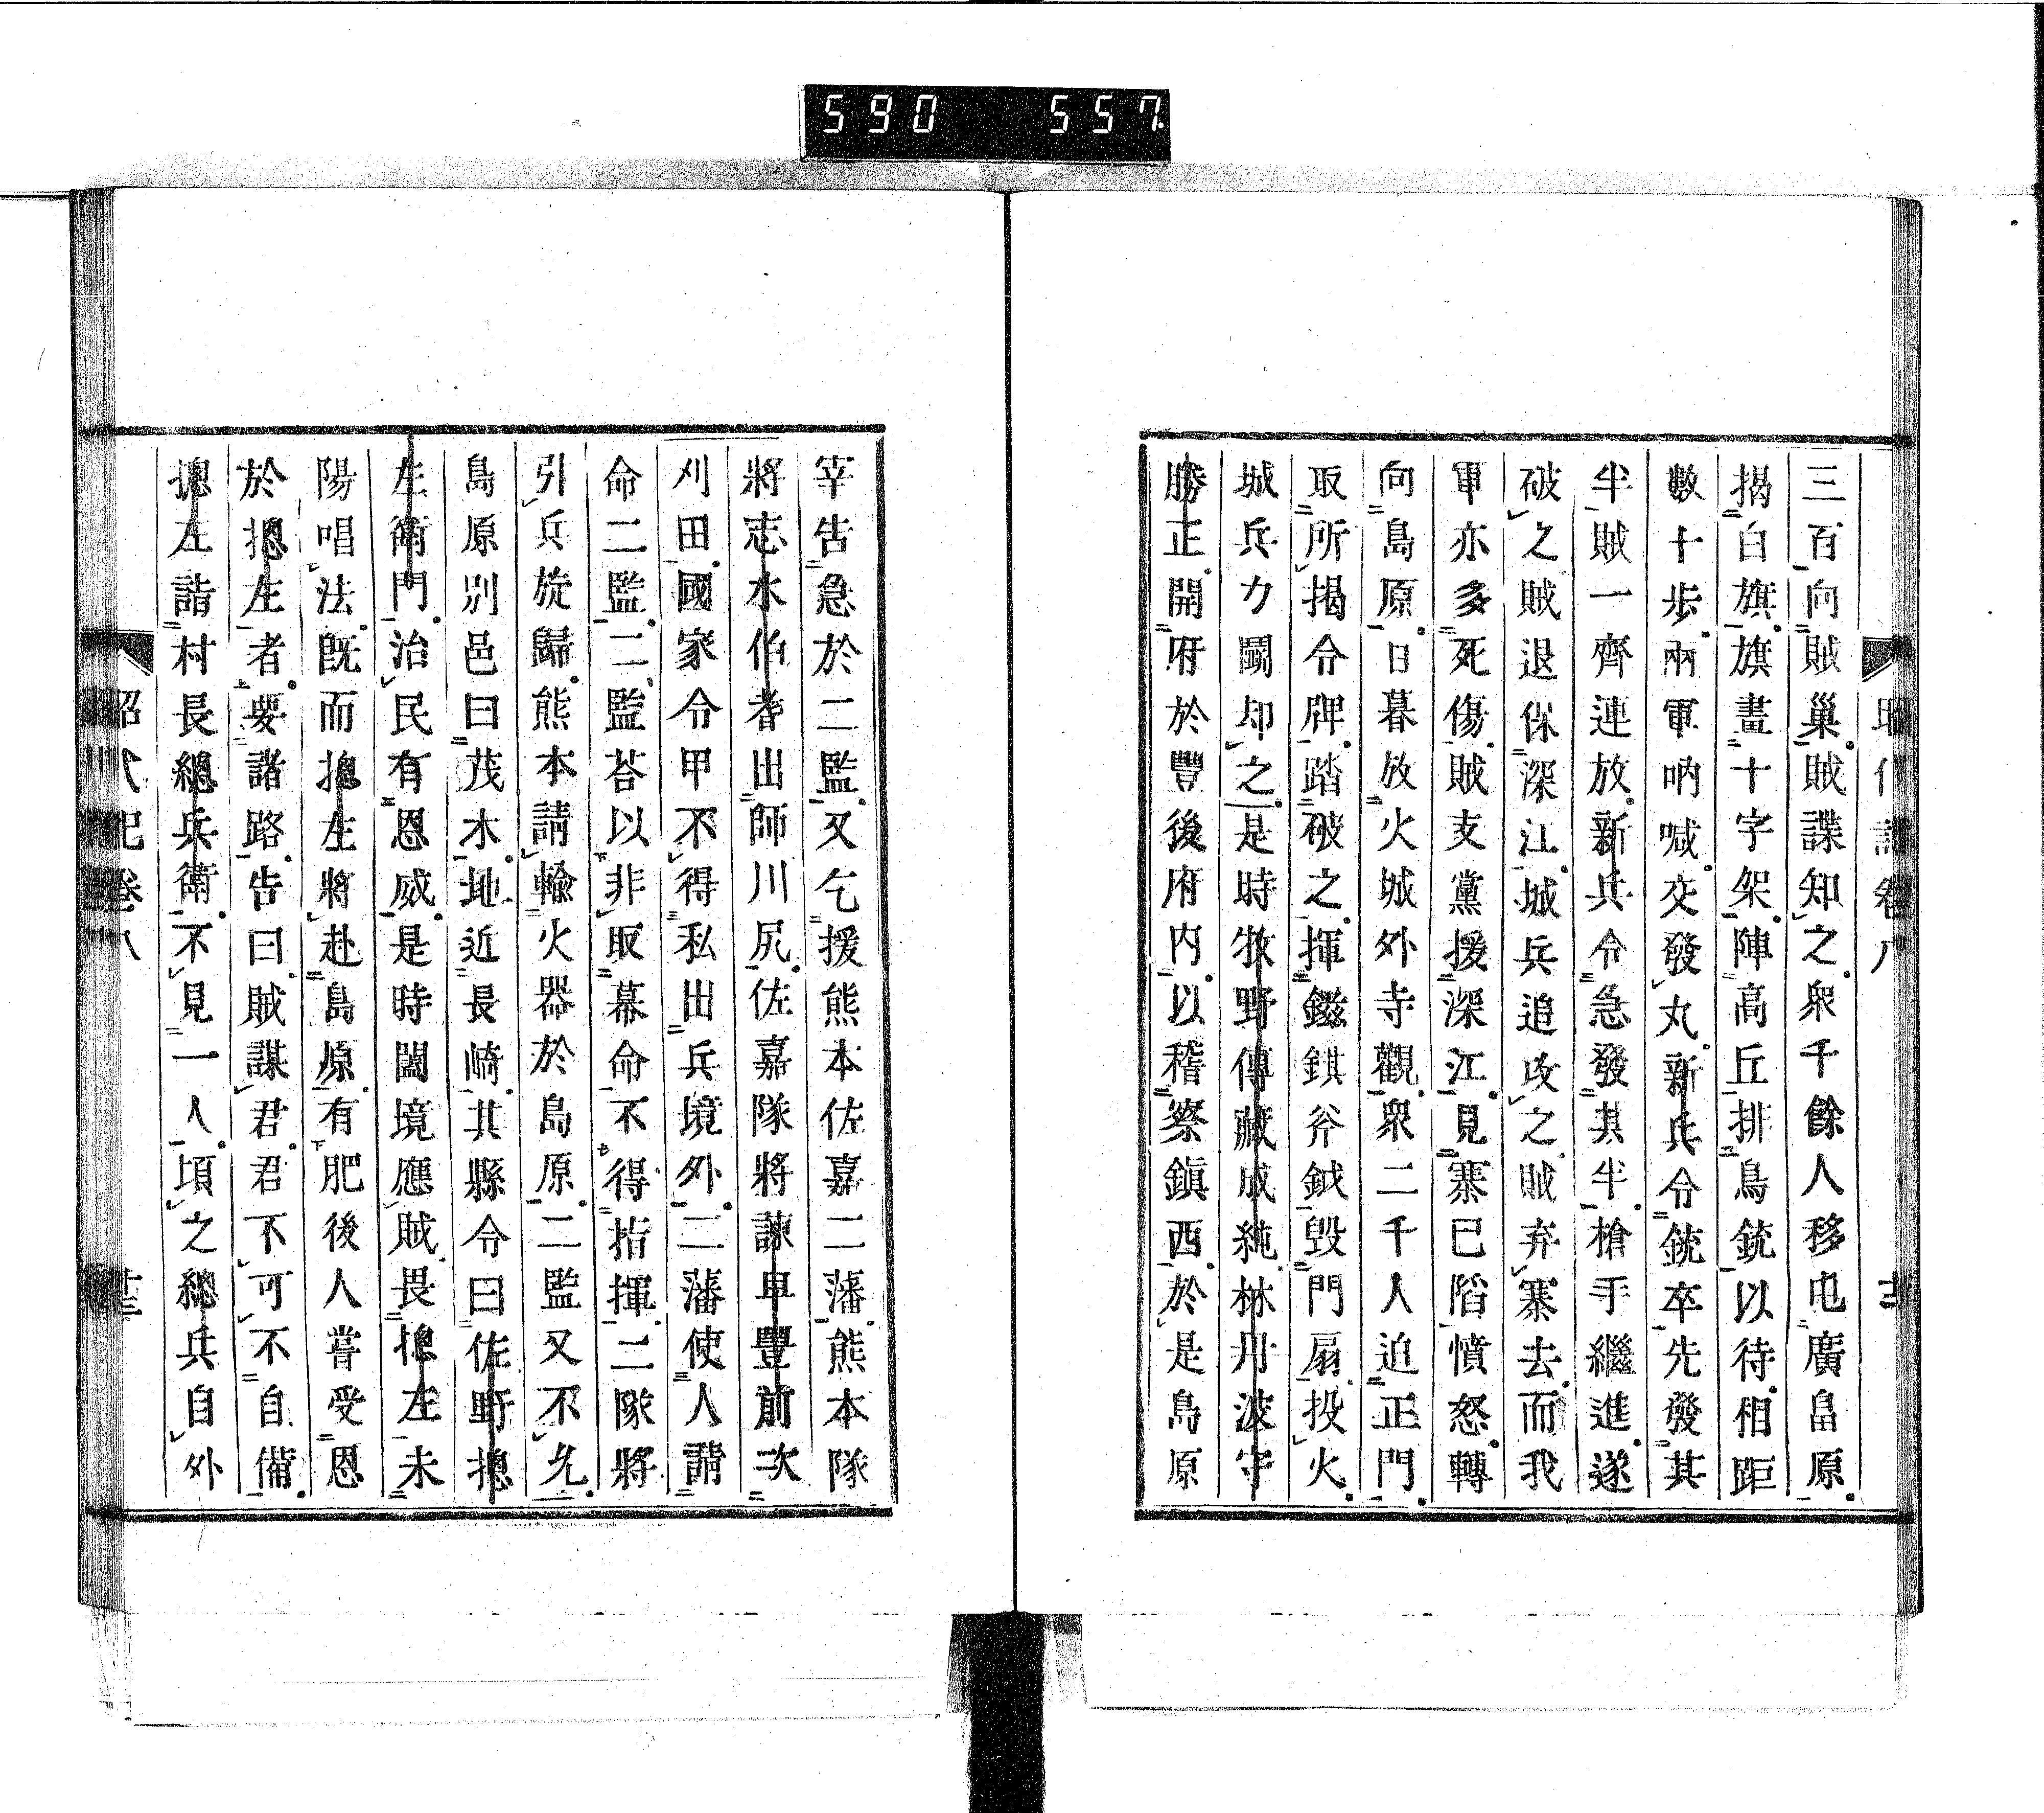 590 557
三百向賊巢賊諜知之衆千餘人移屯廣畠原
揭白旗旗畫十字架陣高丘排鳥銃以待相距
數十步兩軍吶喊交發丸新兵令銃卒先發其
半賊一齊連放新兵令急發其半槍手繼進遂
破之賊退保深江城兵追攻之賊弃寨去而我
軍亦多死傷賊支黨援深江見寨已陷憤怒轉
向島原日暮放火城外寺觀衆二千人迫正門
取所揭令牌踏破之揮鎡錤斧鉞毀門扇投火
城兵力鬭却之是時牧野傳藏成純林丹波守
勝正開府於豐後府內以稽察鎮西於是島原
宰告急於二監又乞援熊本佐嘉二藩熊本隊
將志水伯耆出師川尻佐嘉隊將諫早豐前次
刈田國家令甲不得私出兵境外二藩使人請
命二監二監荅以非取幕命不得指揮二隊將
引兵旋歸熊本請輸火器於島原二監又不允
島原別邑曰茂木地近長崎其縣令曰佐野摠
左衛門治民有恩威是時闔境應賊畏摠左未
陽唱法既而摠左將赴島原有肥後人嘗受恩
於摠左者要諸路告曰賊謀君君不可不自備
摠左詣村長總兵衛不見一人頃之總兵自外
昭代記卷八